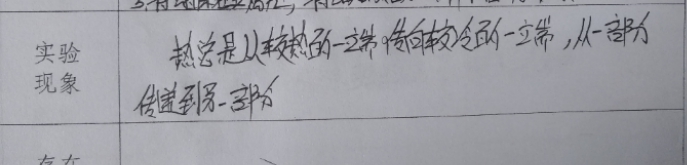 实验
现象
热总是从较热的一端传向较冷的一端，从一部分
传递到另一部分
存在